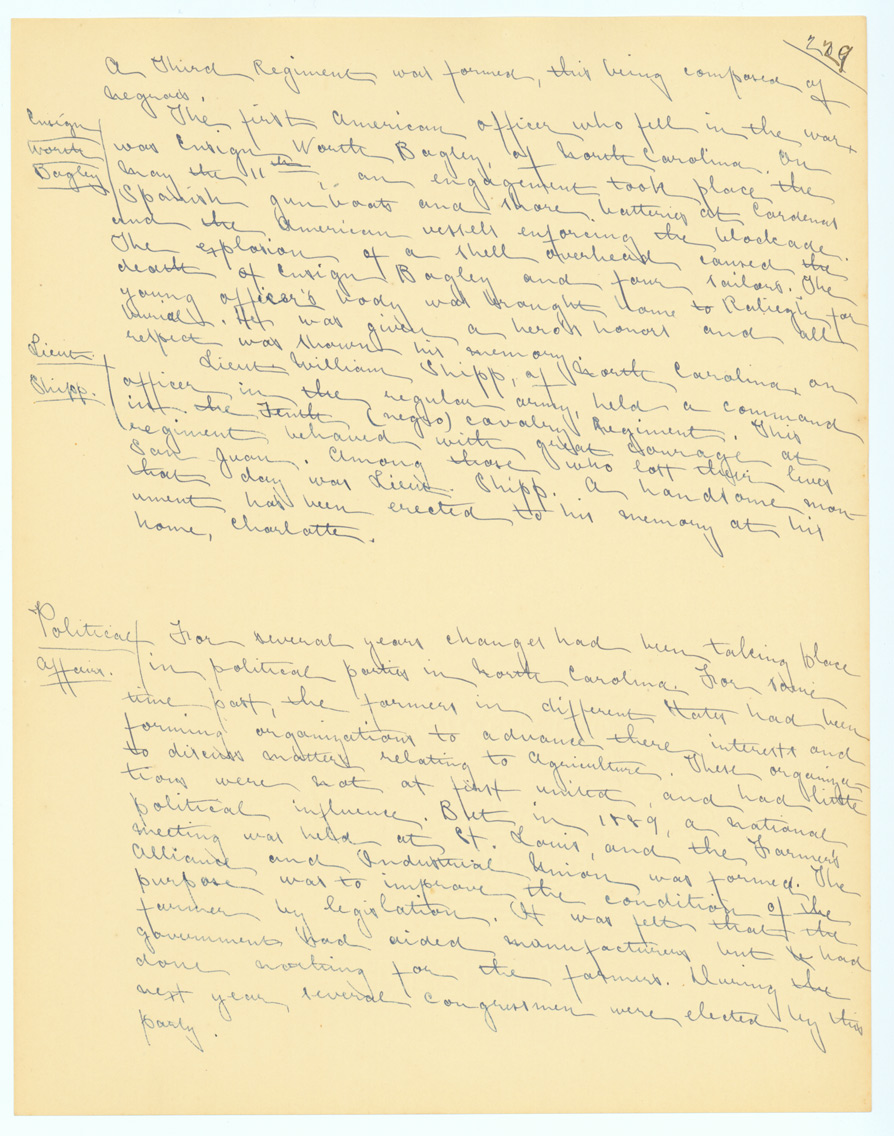 229
A Third Regiment was formed, this being composed of
negroes.
The first American officer who fell in the war
Ensign
Worth
Bagley
was Ensign Worth Bagley, of North Carolina. On
May the 11th, an engagement took place the
Spanish gun boats and shore batteries at Cardenas
and the American vessels enforcing the blockade.
The explosion of a shell overhead caused the
death of Ensign Bagley and four sailors. The
young officer's body was brought home to Raleigh for
burial. He was given a hero's honors and all
respect was shown his memory.
Lieut.
Shipp.
Lieut. William Shipp, of North Carolina, an
officer in the regular army, held a command
in the Tenth (negro) cavalry Regiment. This
regiment behaved with great courage at
San Juan. Among those who lost their lives
that day was Lieut. Shipp. A handsome mon-
ument has been erected to his memory at his
home, Charlotte.
Political
Affairs.
For several years changes had been taking place
in political parties in North Carolina. For some
time past, the farmers in different States had been
forming organizations to advance there interests and
to discuss matters relating to Agriculture. These organiza-
tions were not at first united, and had little
political influence. But in 1889, a national
meeting was held at St. Louis, and the Farmer's
Alliance and Industrial Union was formed. The
purpose was to improve the condition of the
farmer by legislation. It was felt that the
government had aided manufacturers but had
done nothing for the farmers. During the
next year, several congressmen were elected by this
party.